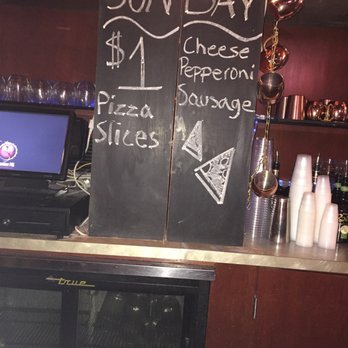 SUNDAY
$1
Pizza
Slices
Cheese
Pepperoni
Sausage
true